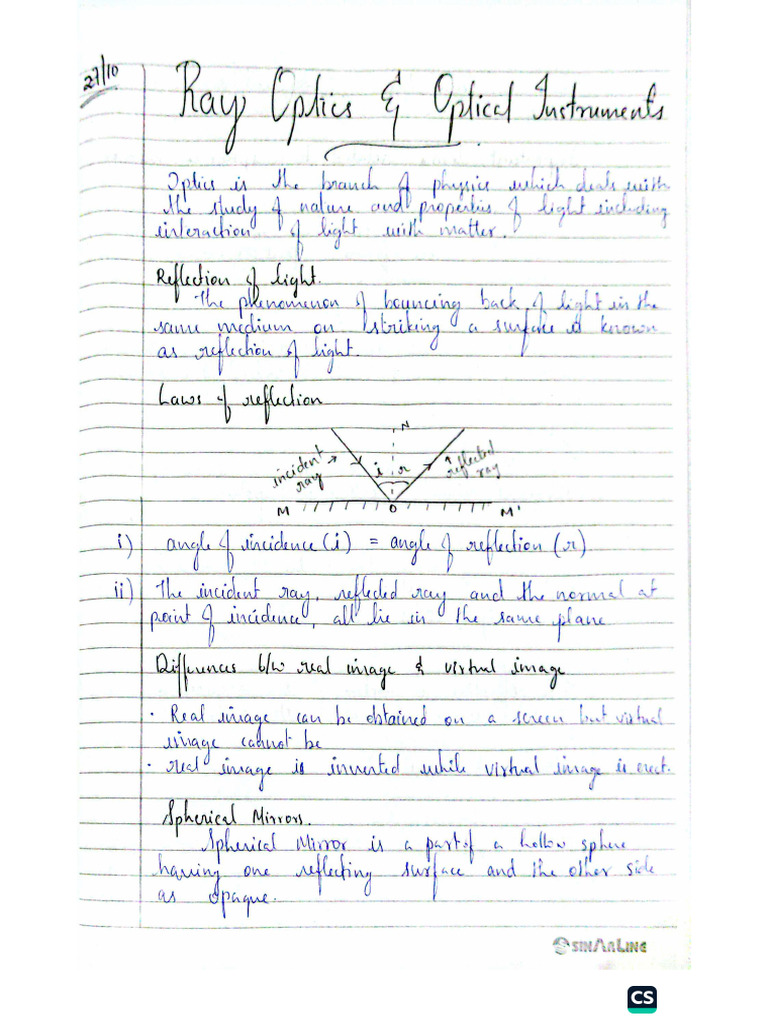 27/10
Ray Optics & Optical Instruments
Optics is the branch of physics which deals with
the study of nature and properties of light including
interaction of light with matter.
Reflection of light.
The phenomenon of bouncing back of light in the
same medium on striking a surface is known
as reflection of light.
Laws of reflection
N
incident
ray
i
r
reflected
ray
M
O
M'
i) angle of incidence (i) = angle of reflection (r)
ii) The incident ray, reflected ray and the normal at
point of incidence, all lie in the same plane
Differences b/w real image & virtual image
· Real image can be obtained on a screen but virtual
image cannot be
· real image is inverted while virtual image is erect.
Spherical Mirrors.
Spherical Mirror is a part of a hollow sphere
having one reflecting surface and the other side
as opaque.
SINARLINE
CS